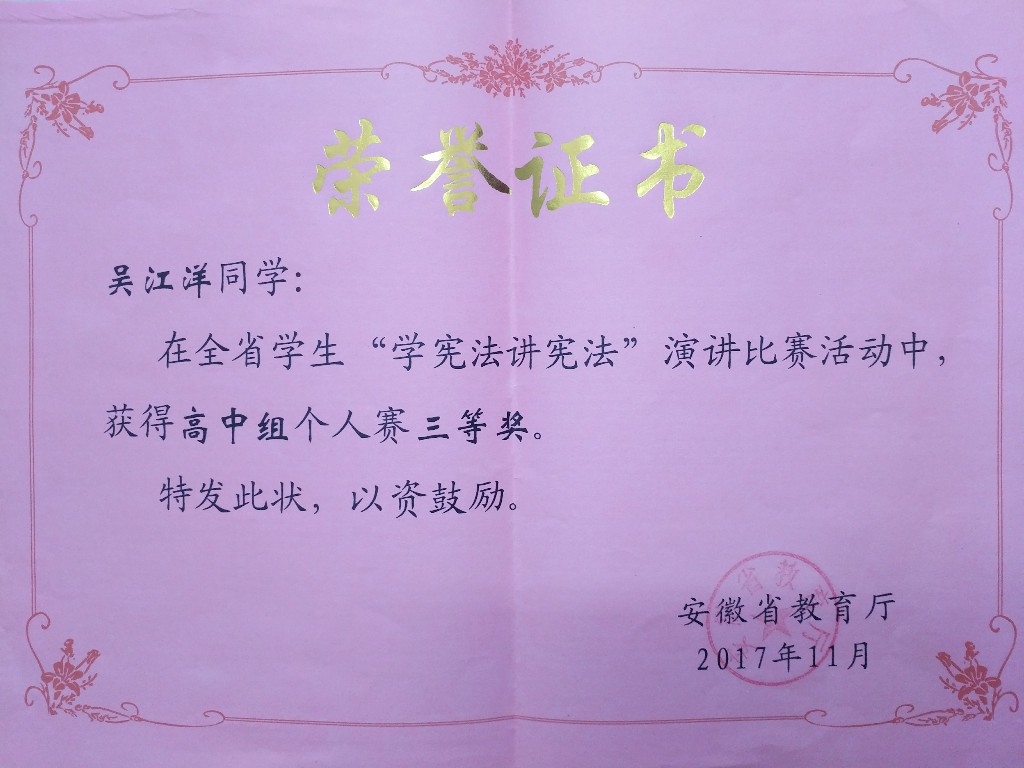 荣誉证书
吴江洋同学：
在全省学生“学宪法讲宪法”演讲比赛活动中，
获得高中组个人赛三等奖。
特发此状，以资鼓励。
省教
安徽省教育厅
2017年11月